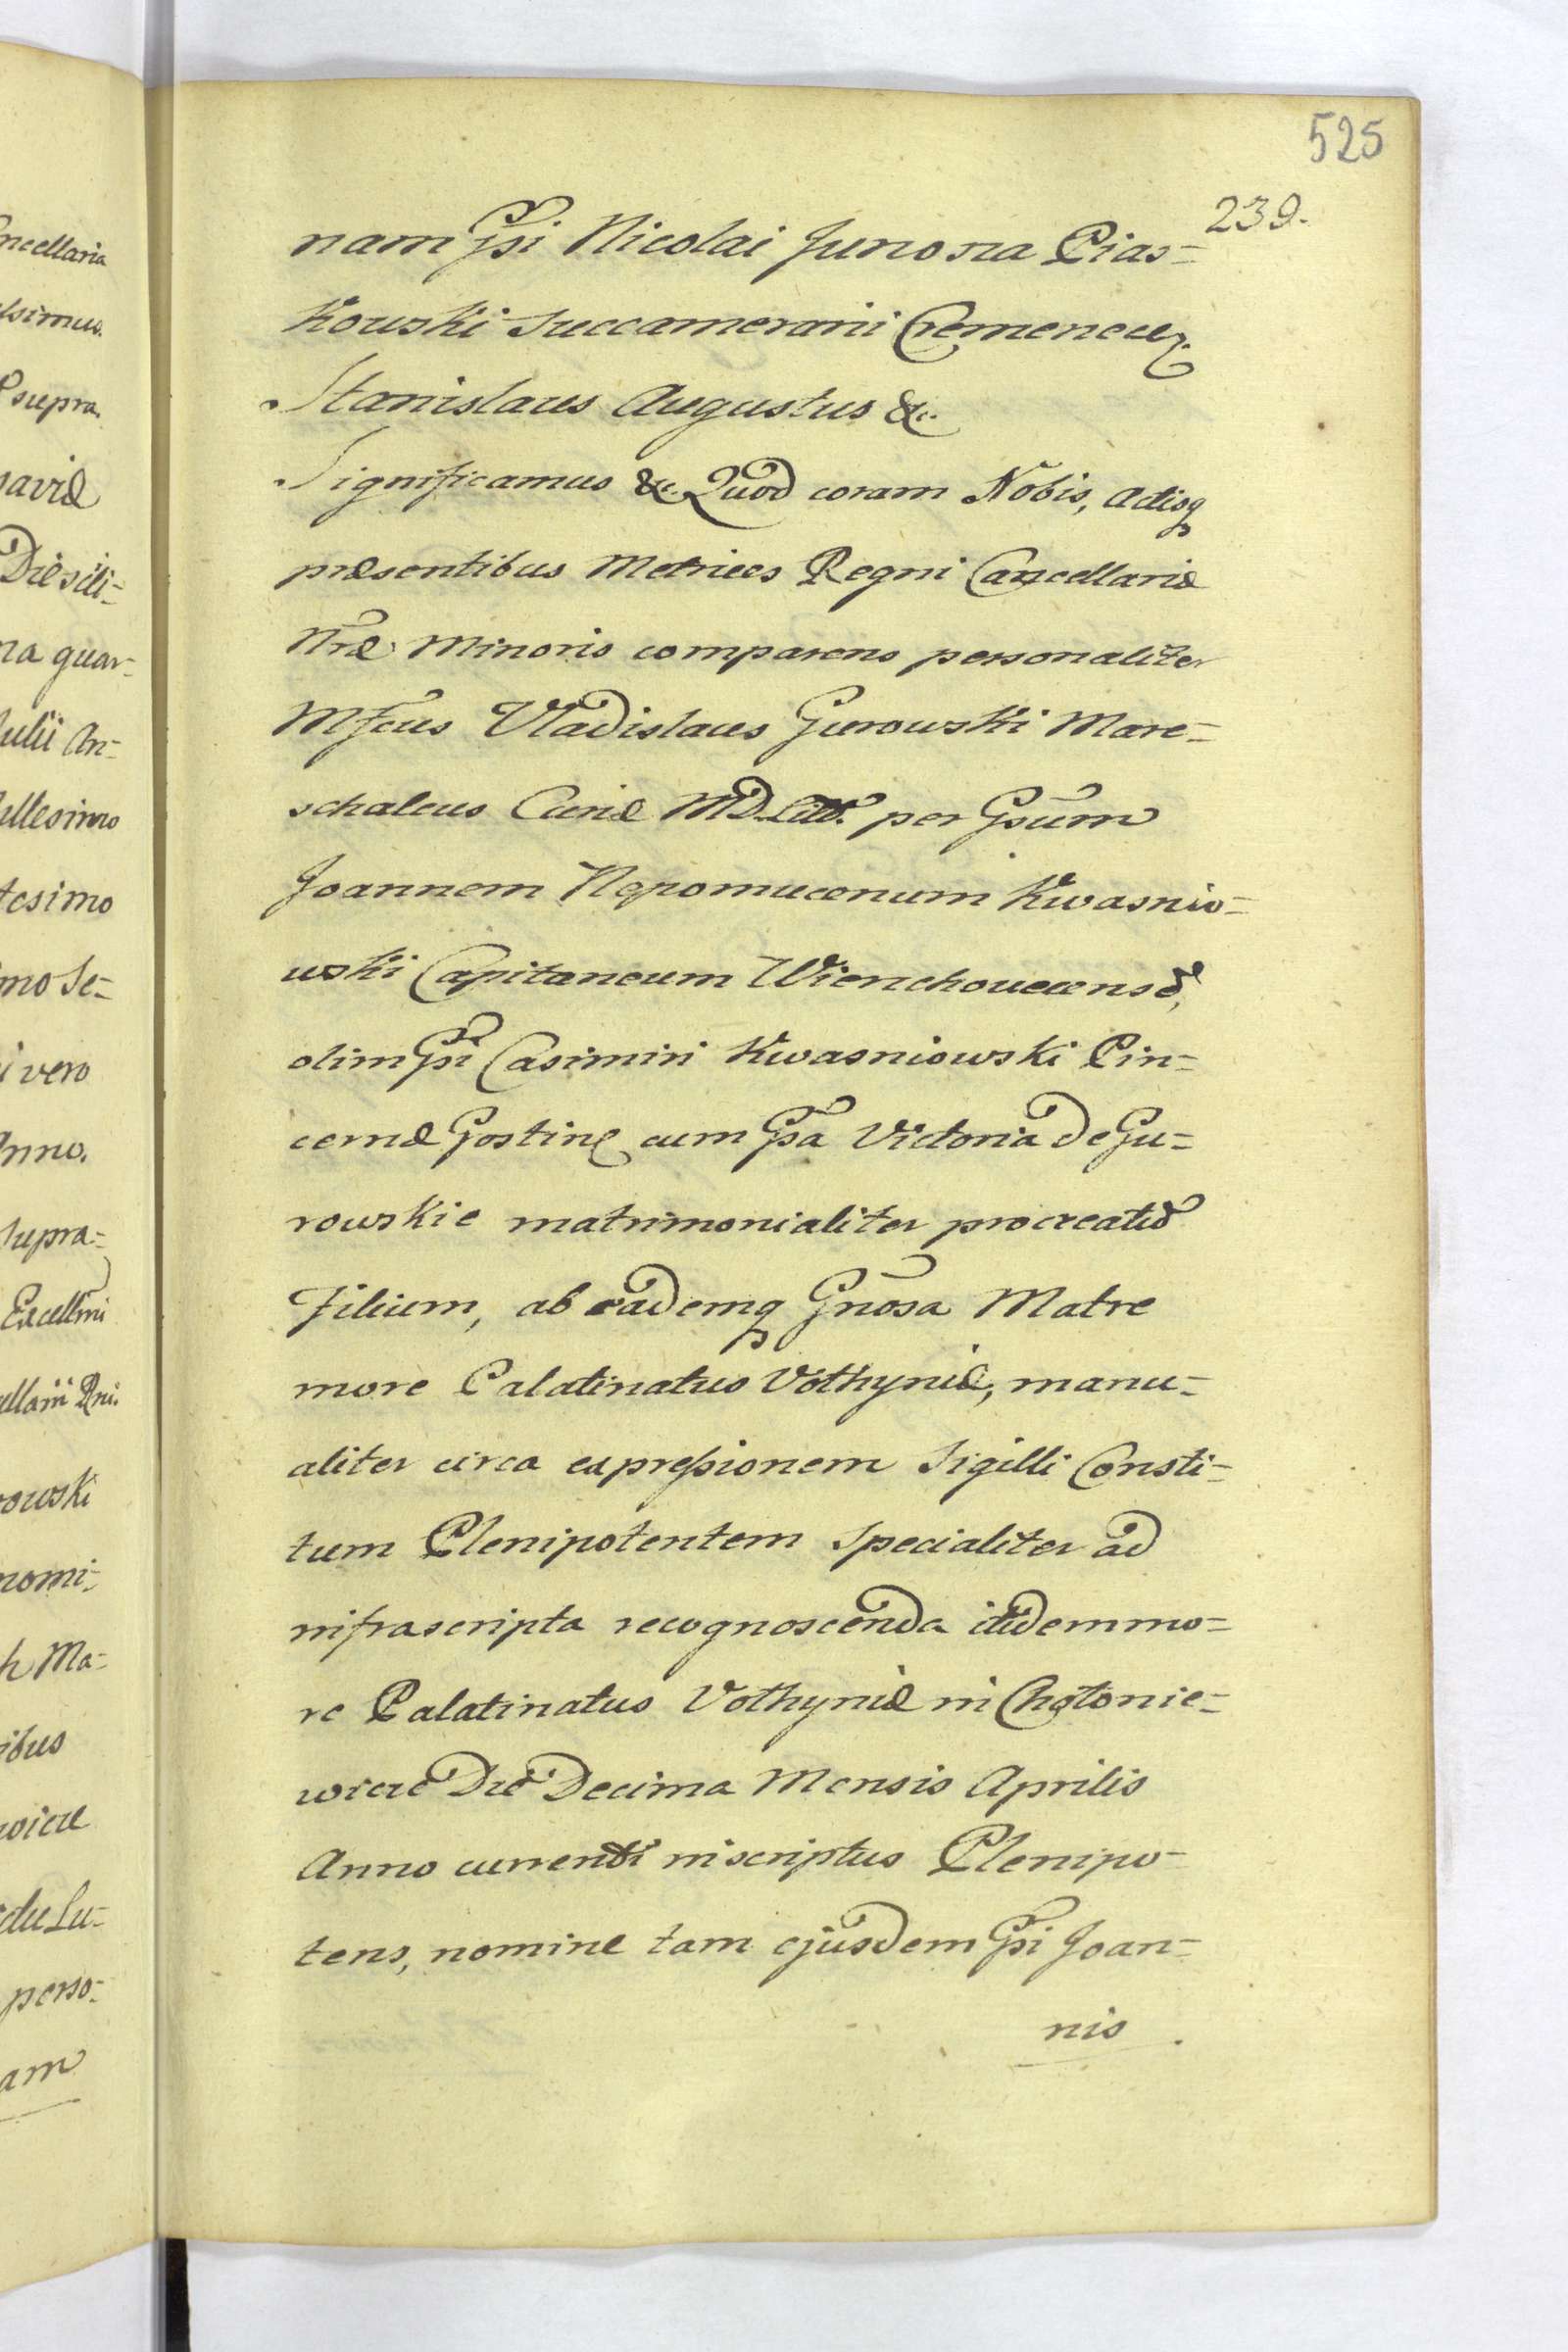 525
239.
nam Gsi Nicolai Junosza Pias=
kowski Succamerarii Cremenecen.
Stanislaus Augustus &c.
Significamus &c. Quod coram Nobis, Actisq
præsentibus Metrices Regni Cancellariæ
Nræ Minoris comparens personaliter
Mfcus Vladislaus Gurowski Mare=
schalcus Curiæ M D. Litt. per Gsum
Joannem Nepomucenum Kwasnio=
wski Capitaneum Wienchovecense,
olim Gsi Casimiri Kwasniowski Pin=
cernæ Gostinen cum Gsa Victoria de Gu=
rowskie matrimonialiter procreatum
Filium, ab eademq Gnosa Matre
more Palatinatus Volhyniæ, manu=
aliter circa expressionem Sigilli Consti=
tum Plenipotentem specialiter ad
infrascripta recognoscenda itidem mo=
re Palatinatus Volhyniæ in Chotonie=
wicze Die Decima Mensis Aprilis
Anno currenti inscriptus Plenipo=
tens, nomine tam ejusdem Gsi Joan=
nis
ncellaria
ssimus.
supra
Die sili=
na quar=
Julii An=
illesimo
tesimo
mo Se=
i vero
Anno.
supra=
Excellmi
cellarii Rni.
rowski
nomi=
h Ma=
ibus
wicze
du Lu=
perso=
am